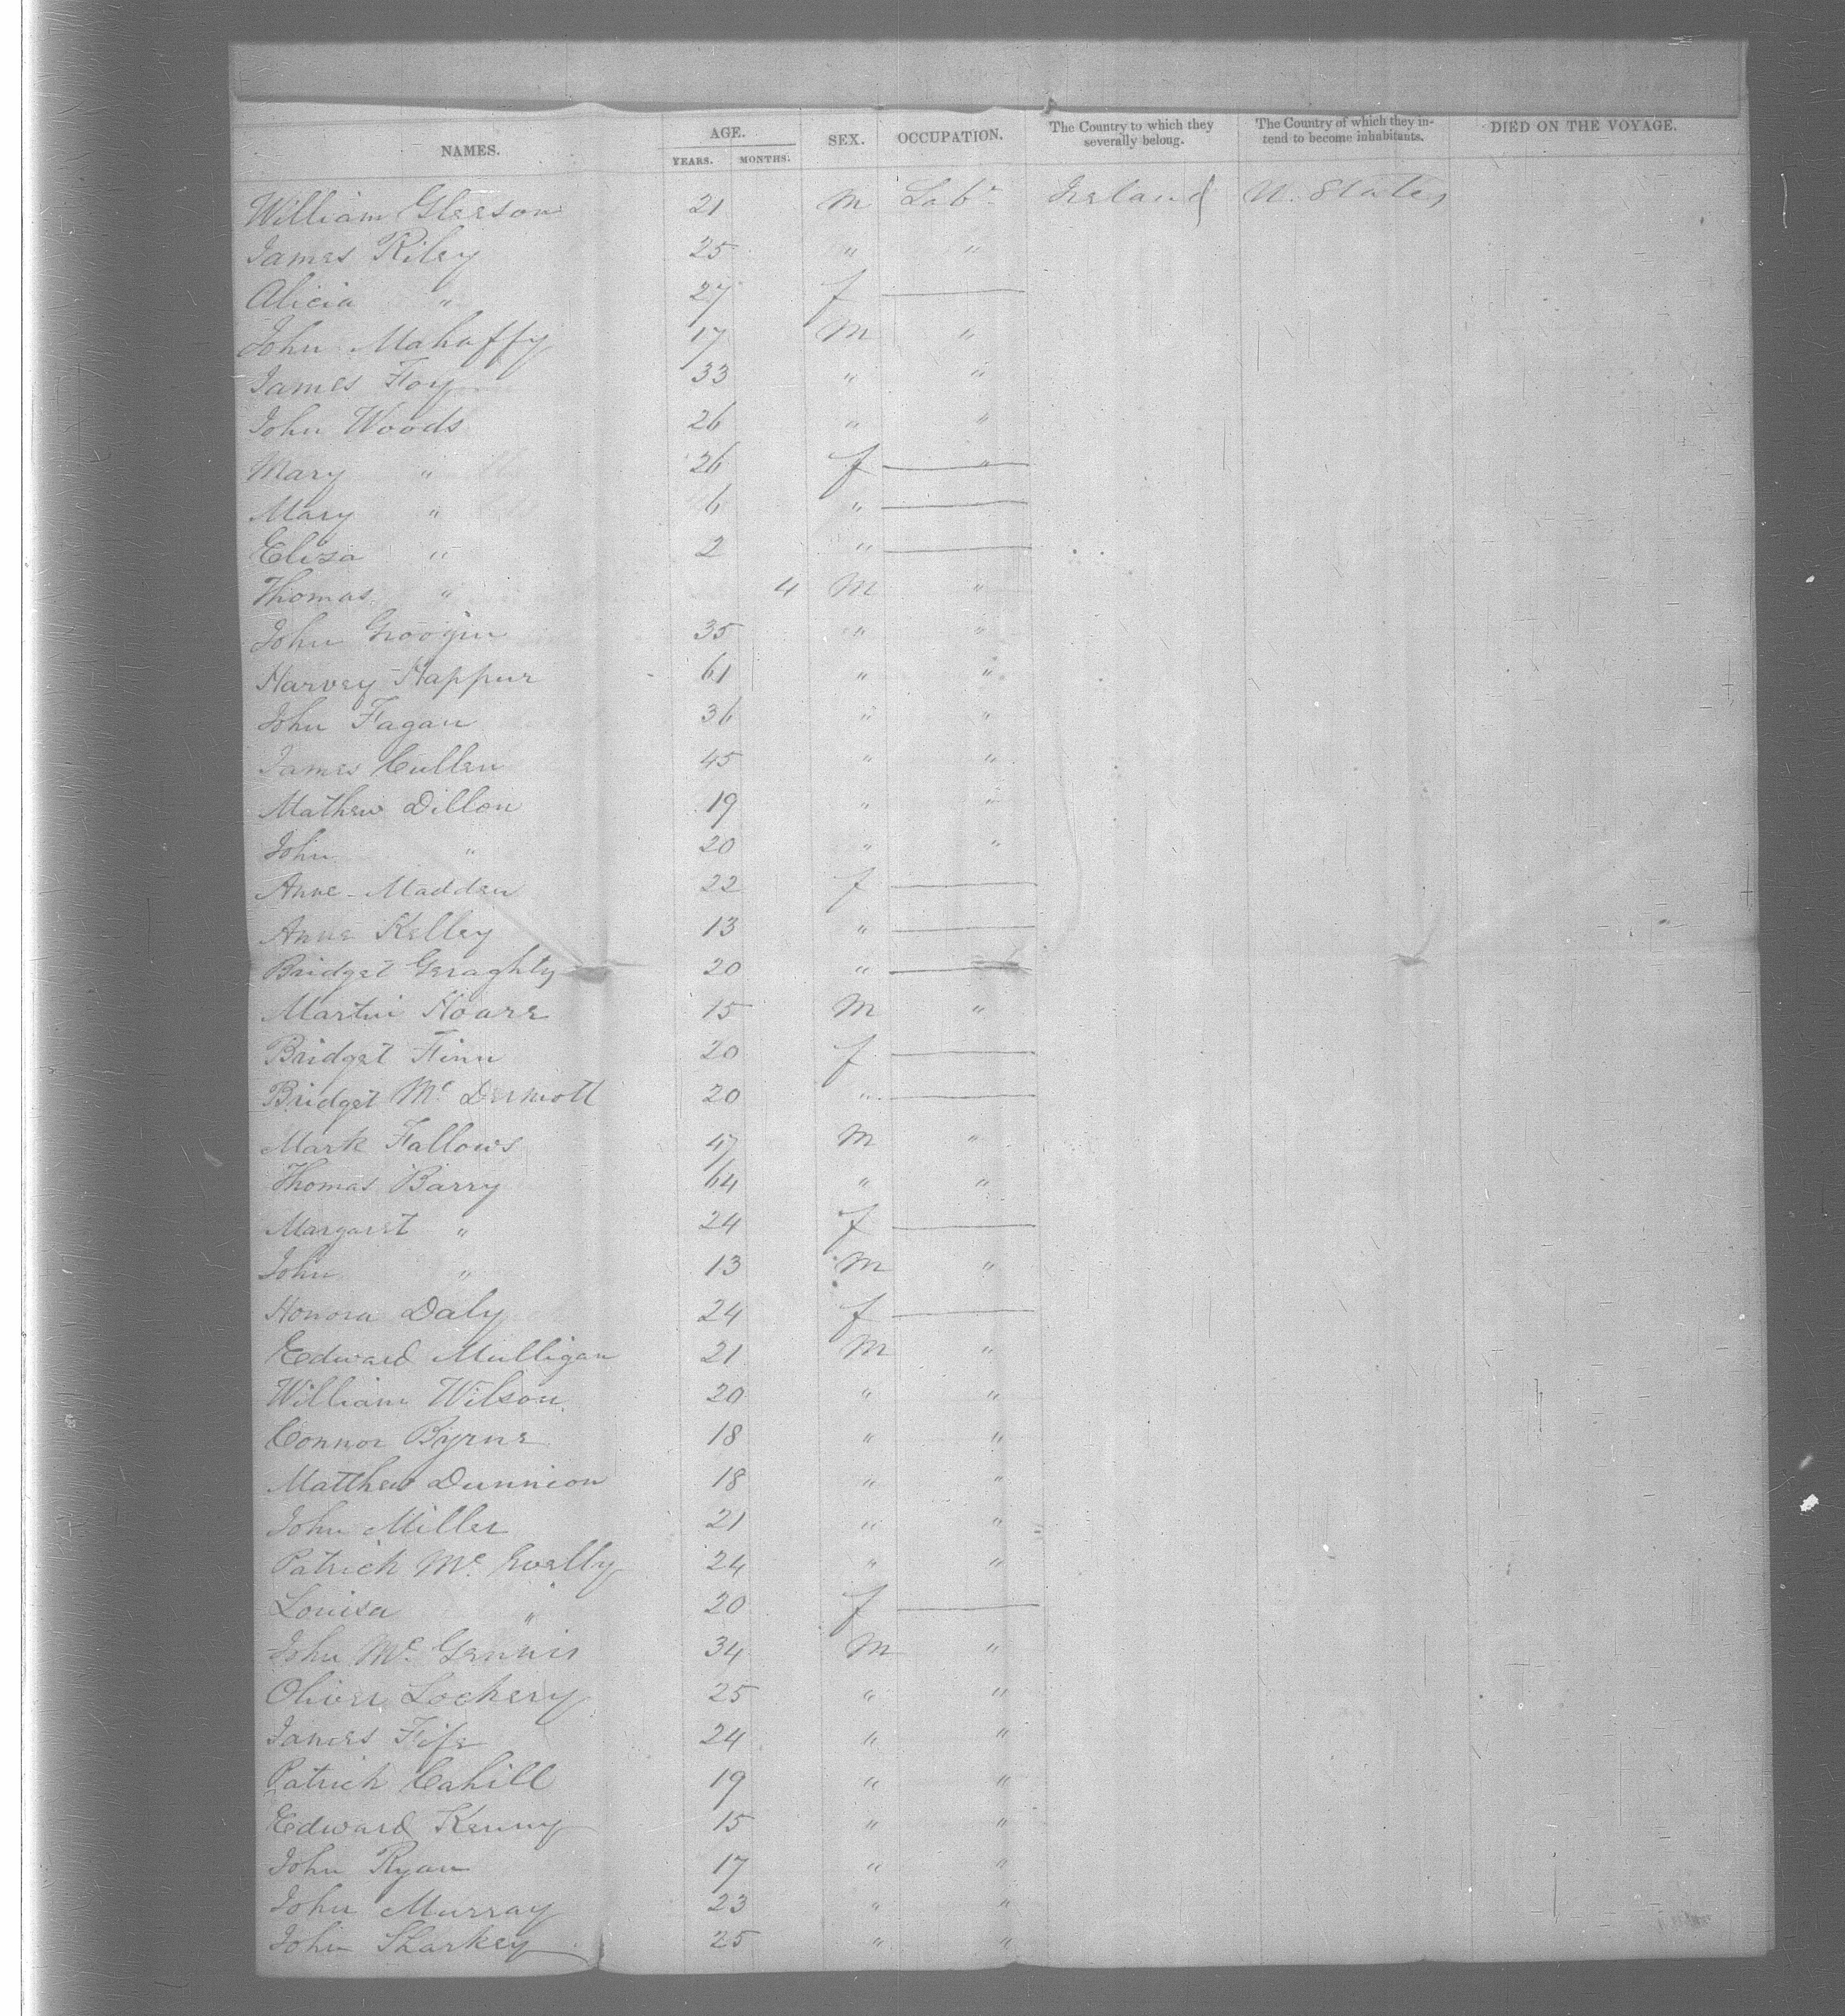 NAMES. AGE. SEX. OCCUPATION. The Country to which they severally belong. The Country of which they intend to become inhabitants. DIED ON THE VOYAGE.
YEARS. MONTHS.
William Gleeson 21 M Labr Ireland U. States
James Riley 25 " "
Alicia " 27 f —
John Mahaffy 17 M "
James Foy 33 " "
John Woods 26 " "
Mary " 26 f — "
Mary " 6 " —
Eliza " 2 " —
Thomas " 4 M "
John Groogin 35 " "
Harvey Happur 61 " "
John Fagan 36 " "
James Cullen 45 " "
Mathew Dillon 19 " "
John " 20 " "
Anne Madden 22 f —
Anne Kelley 13 " —
Bridget Geraghty 20 " —
Martin Hoare 15 M "
Bridget Finn 20 f —
Bridget Mc Dermott 20 " —
Mark Fallows 47 M "
Thomas Barry 64 " "
Margaret " 24 f —
John " 13 M "
Honora Daly 24 f —
Edward Mulligan 21 M "
William Wilson 20 " "
Connor Byrne 18 " "
Matthew Dunnion 18 " "
John Miller 21 " "
Patrick Mc 24 " "
Louisa " 20 f —
John Mc Gennis 34 M "
Oliver Lockery 25 " "
James Fife 24 " "
Patrick Cahill 19 " "
Edward Kenny 15 " "
John Ryan 17 " "
John Murray 23 " "
John Sharkey 25 " "